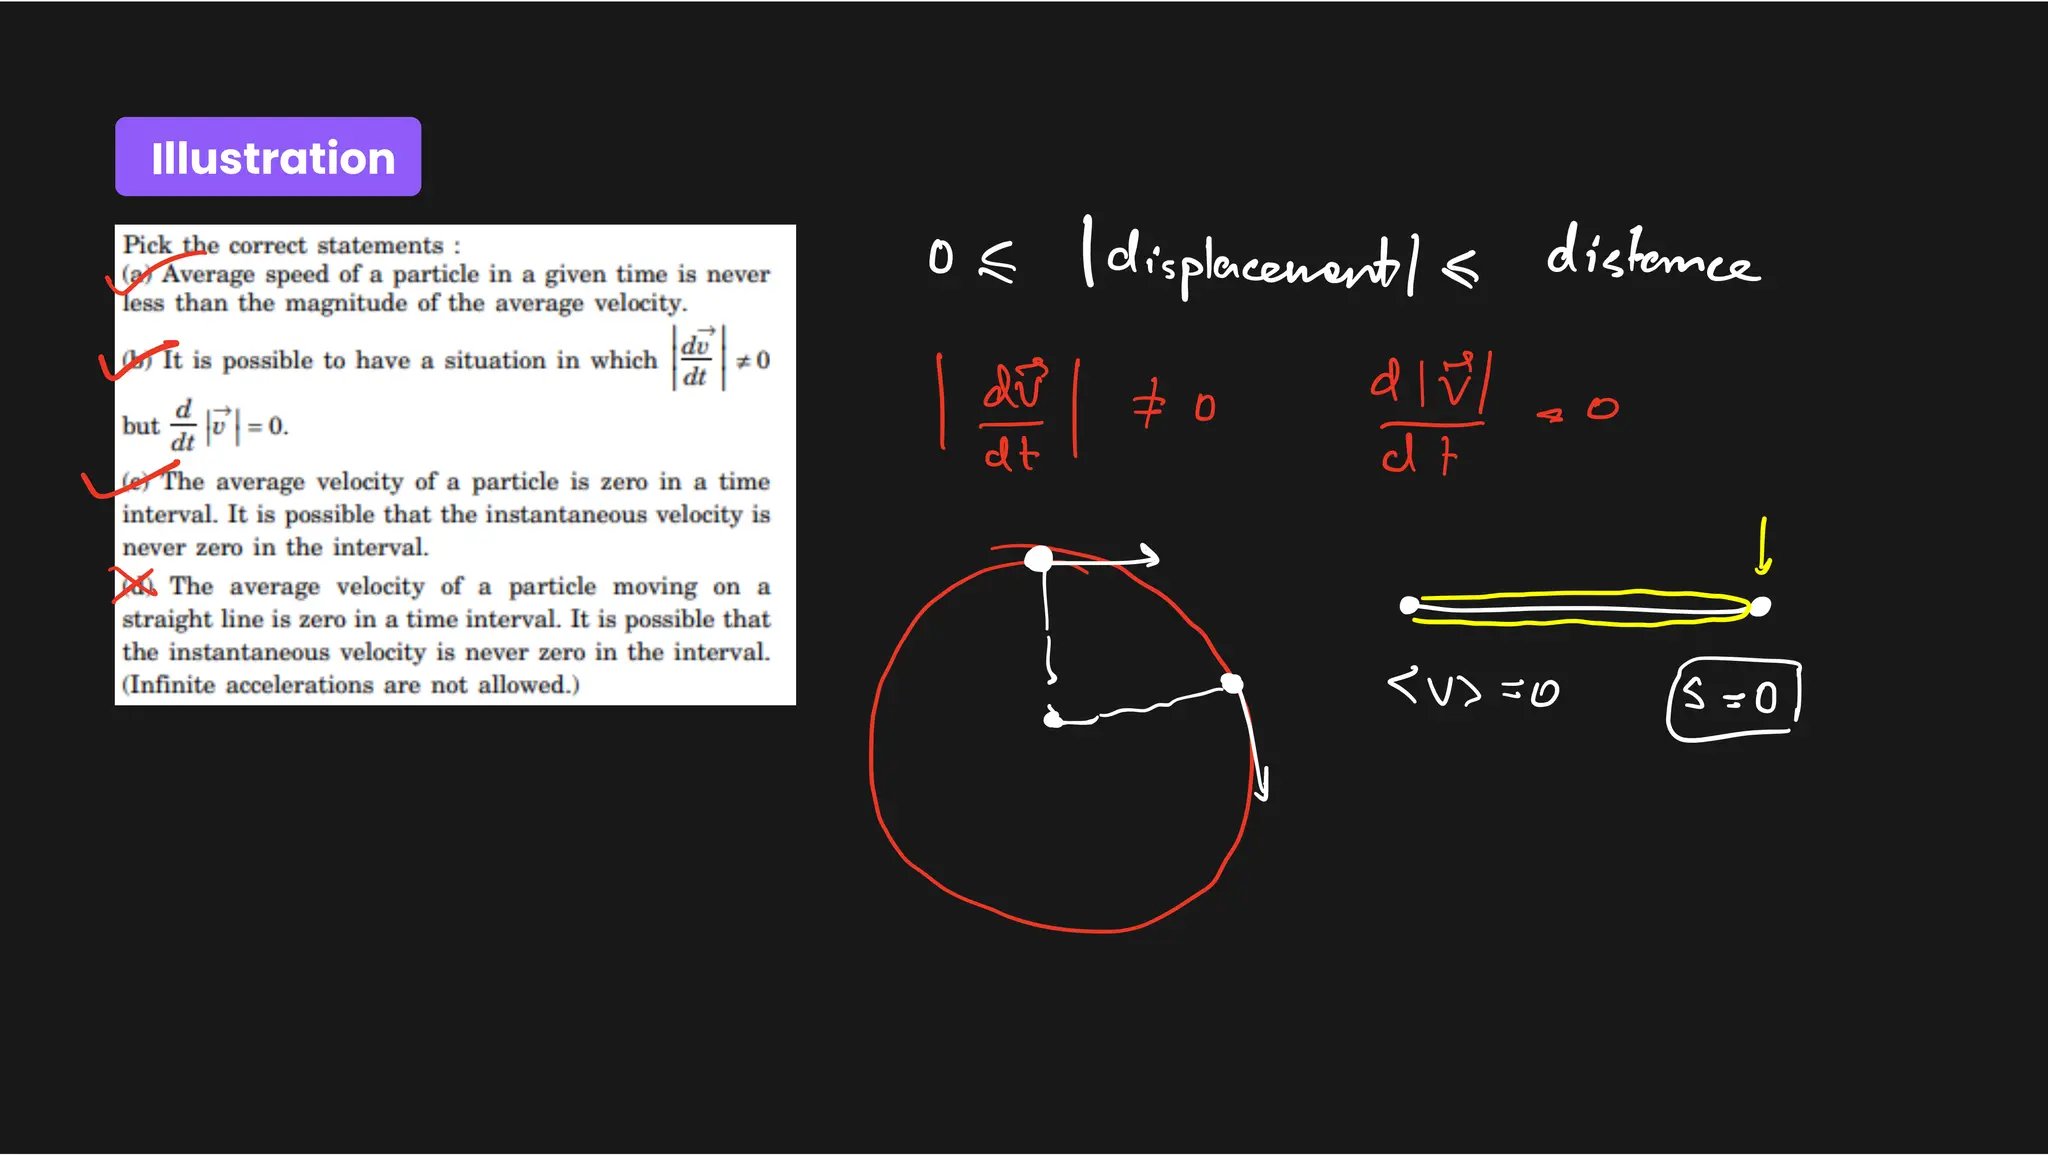 Illustration
Pick the correct statements :
(a) Average speed of a particle in a given time is never
less than the magnitude of the average velocity.
(b) It is possible to have a situation in which |dv⃗/dt| ≠ 0
but d/dt |v⃗| = 0.
(c) The average velocity of a particle is zero in a time
interval. It is possible that the instantaneous velocity is
never zero in the interval.
(d) The average velocity of a particle moving on a
straight line is zero in a time interval. It is possible that
the instantaneous velocity is never zero in the interval.
(Infinite accelerations are not allowed.)
0 ≤ |displacement| ≤ distance
|dv⃗/dt| ≠ 0 d|v⃗|/dt = 0
<v> = 0 S = 0